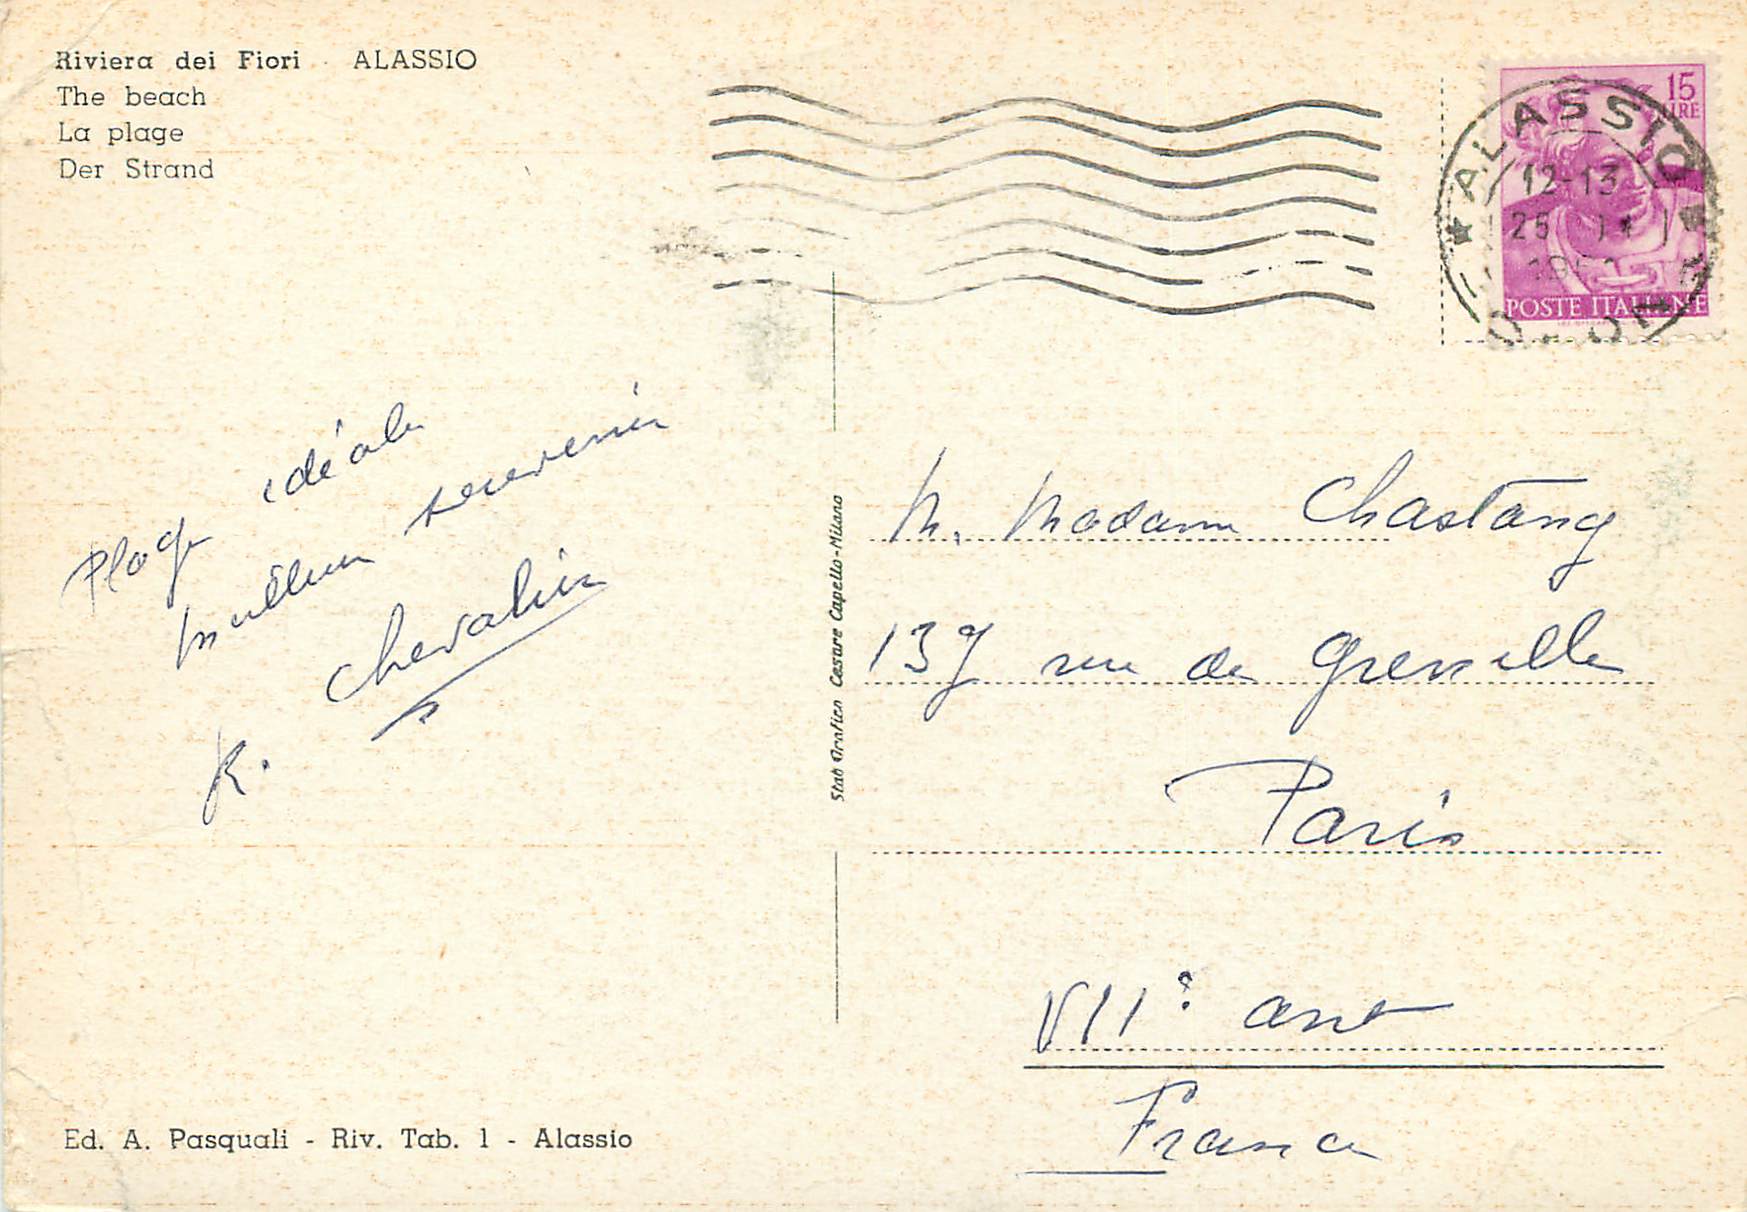 Riviera dei Fiori - ALASSIO
The beach
La plage
Der Strand
15
LIRE
ALASSIO
12-13
25
POSTE ITALIANE
Plage idéale
meilleur souvenir
Chevalier
R.
Stab Grafico Cesare Capello-Milano
M. Madame Chastang
137 rue de Grenelle
Paris
VII° arrt
France
Ed. A. Pasquali - Riv. Tab. 1 - Alassio